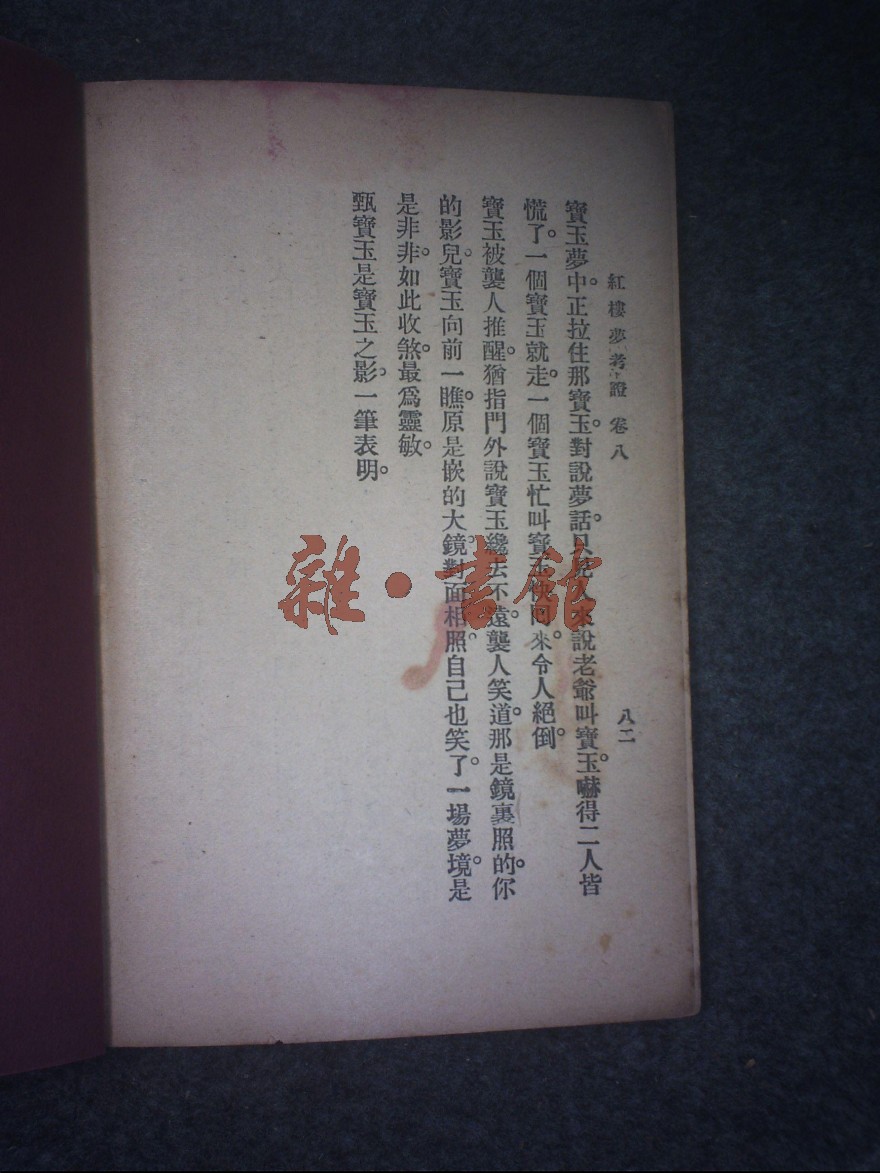 紅樓夢考證 卷八
八二
寶玉夢中。正拉住那寶玉。對說夢話。只見人來說老爺叫寶玉。嚇得二人皆
慌了。一個寶玉就走。一個寶玉忙叫寶玉快回來。令人絕倒。
寶玉被襲人推醒。猶指門外說寶玉纔去不遠。襲人笑道。那是鏡裏照的。你
的影兒。寶玉向前一瞧。原是嵌的大鏡。對面相照。自己也笑了。一場夢境。是
是非非。如此收煞。最爲靈敏。
甄寶玉是寶玉之影。一筆表明。
雜·書館